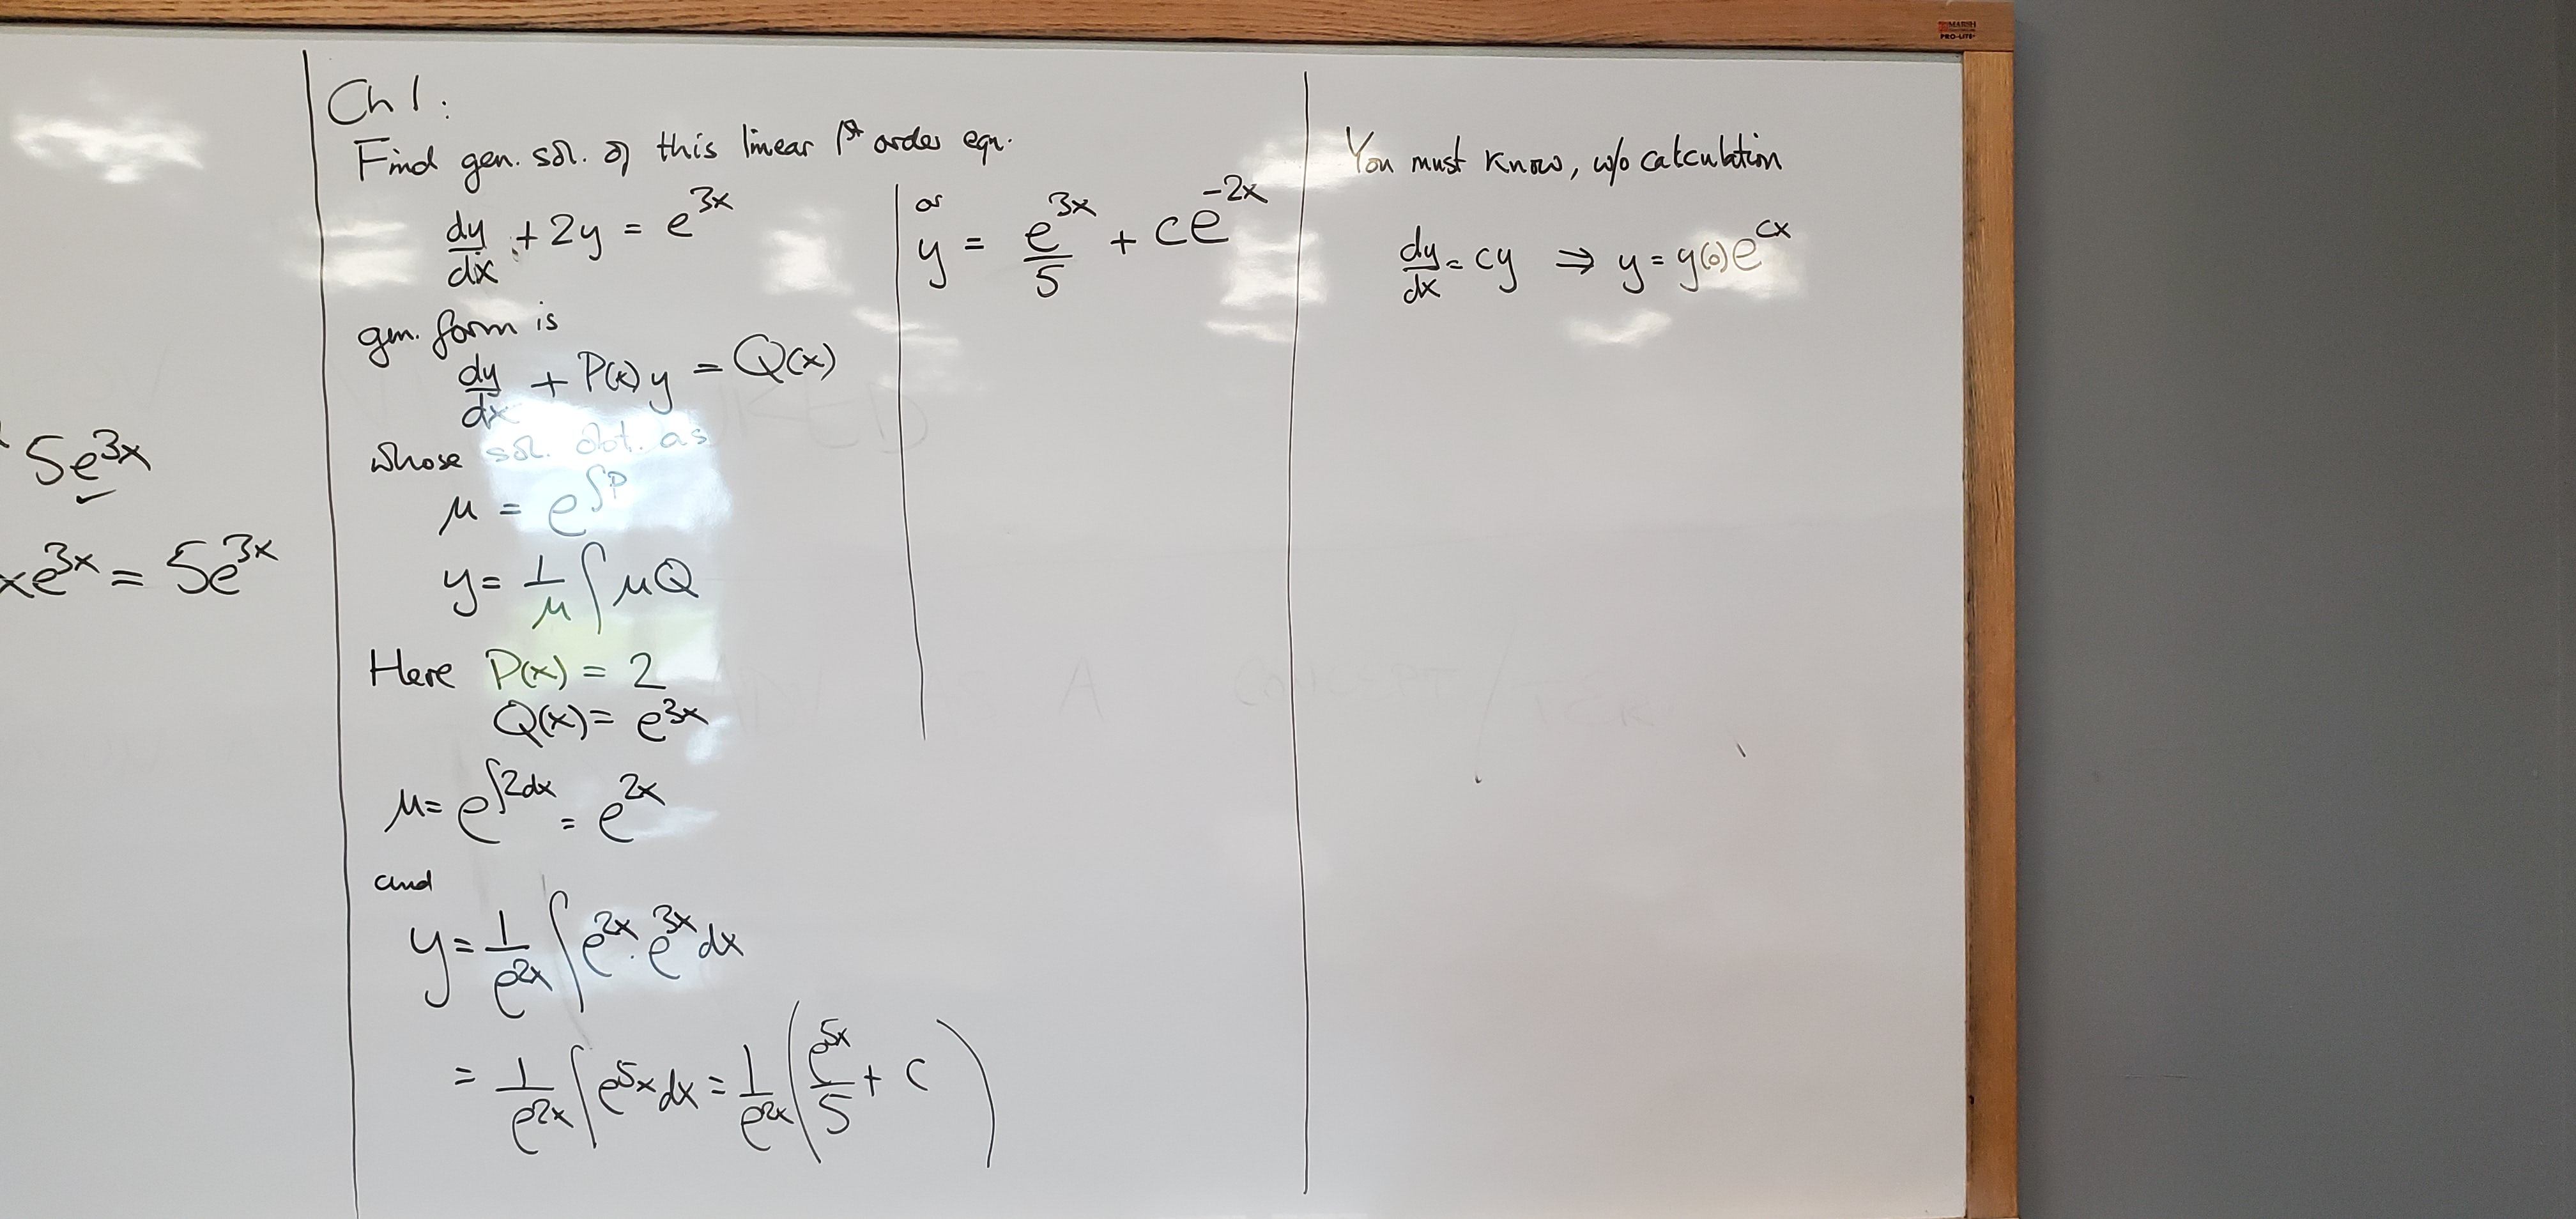 5e^3x
xe^3x = 5e^3x
Ch 1:
Find gen. sol. of this linear 1st order eqn.
dy/dx + 2y = e^3x
gen. form is
dy/dx + P(x) y = Q(x)
whose sol. obt. as
μ = e^∫P
y = 1/μ ∫ μQ
Here P(x) = 2
Q(x) = e^3x
μ = e^∫2dx = e^2x
and
y = 1/e^2x ∫ e^2x · e^3x dx
= 1/e^2x ∫ e^5x dx = 1/e^2x ( e^5x/5 + C )
or
y = e^3x/5 + ce^-2x
You must know, w/o calculation
dy/dx = cy ⇒ y = y(0)e^cx
MARSH
PRO-LITE